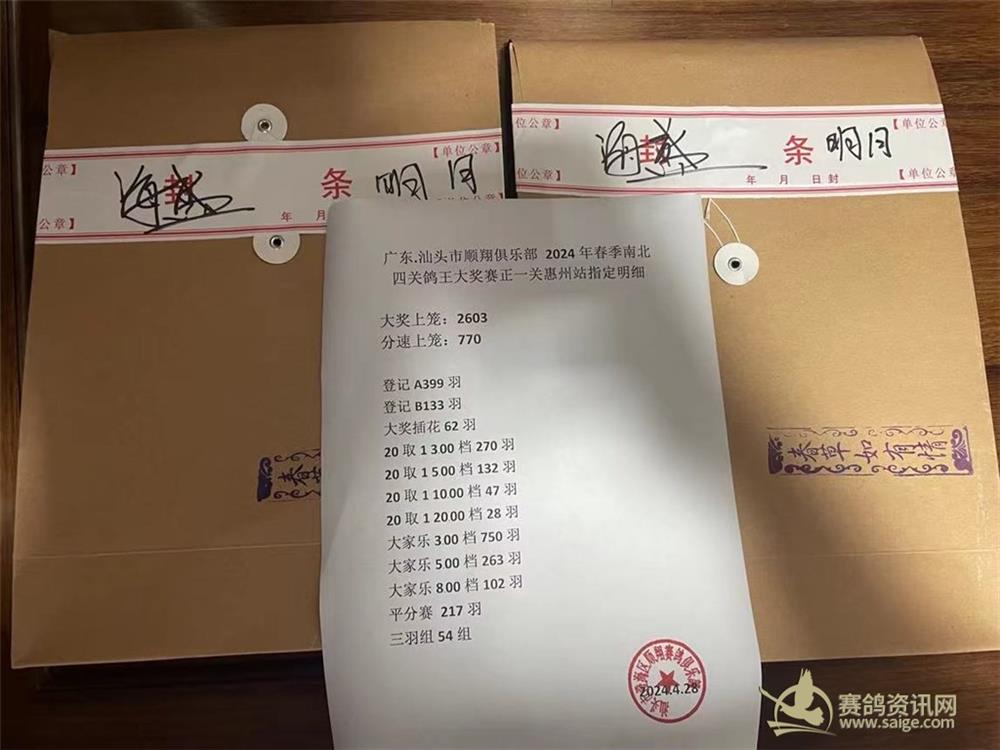 公章】
【单位公章】
封 条
海盛
明月
年 月
公章】
位公章】
【单位公章
封 条
明月
年 月 日封
位公章】
【单位公章】
广东.汕头市顺翔俱乐部 2024 年春季南北
四关鸽王大奖赛正一关惠州站指定明细
大奖上笼：2603
分速上笼：770
登记 A399 羽
登记 B133 羽
大奖插花 62 羽
20 取 1 300 档 270 羽
20 取 1 500 档 132 羽
20 取 1 1000 档 47 羽
20 取 1 2000 档 28 羽
大家乐 300 档 750 羽
大家乐 500 档 263 羽
大家乐 800 档 102 羽
平分赛 217 羽
三羽组 54 组
2024.4.28
春草
春草如有情
赛鸽资讯网
www.saige.com